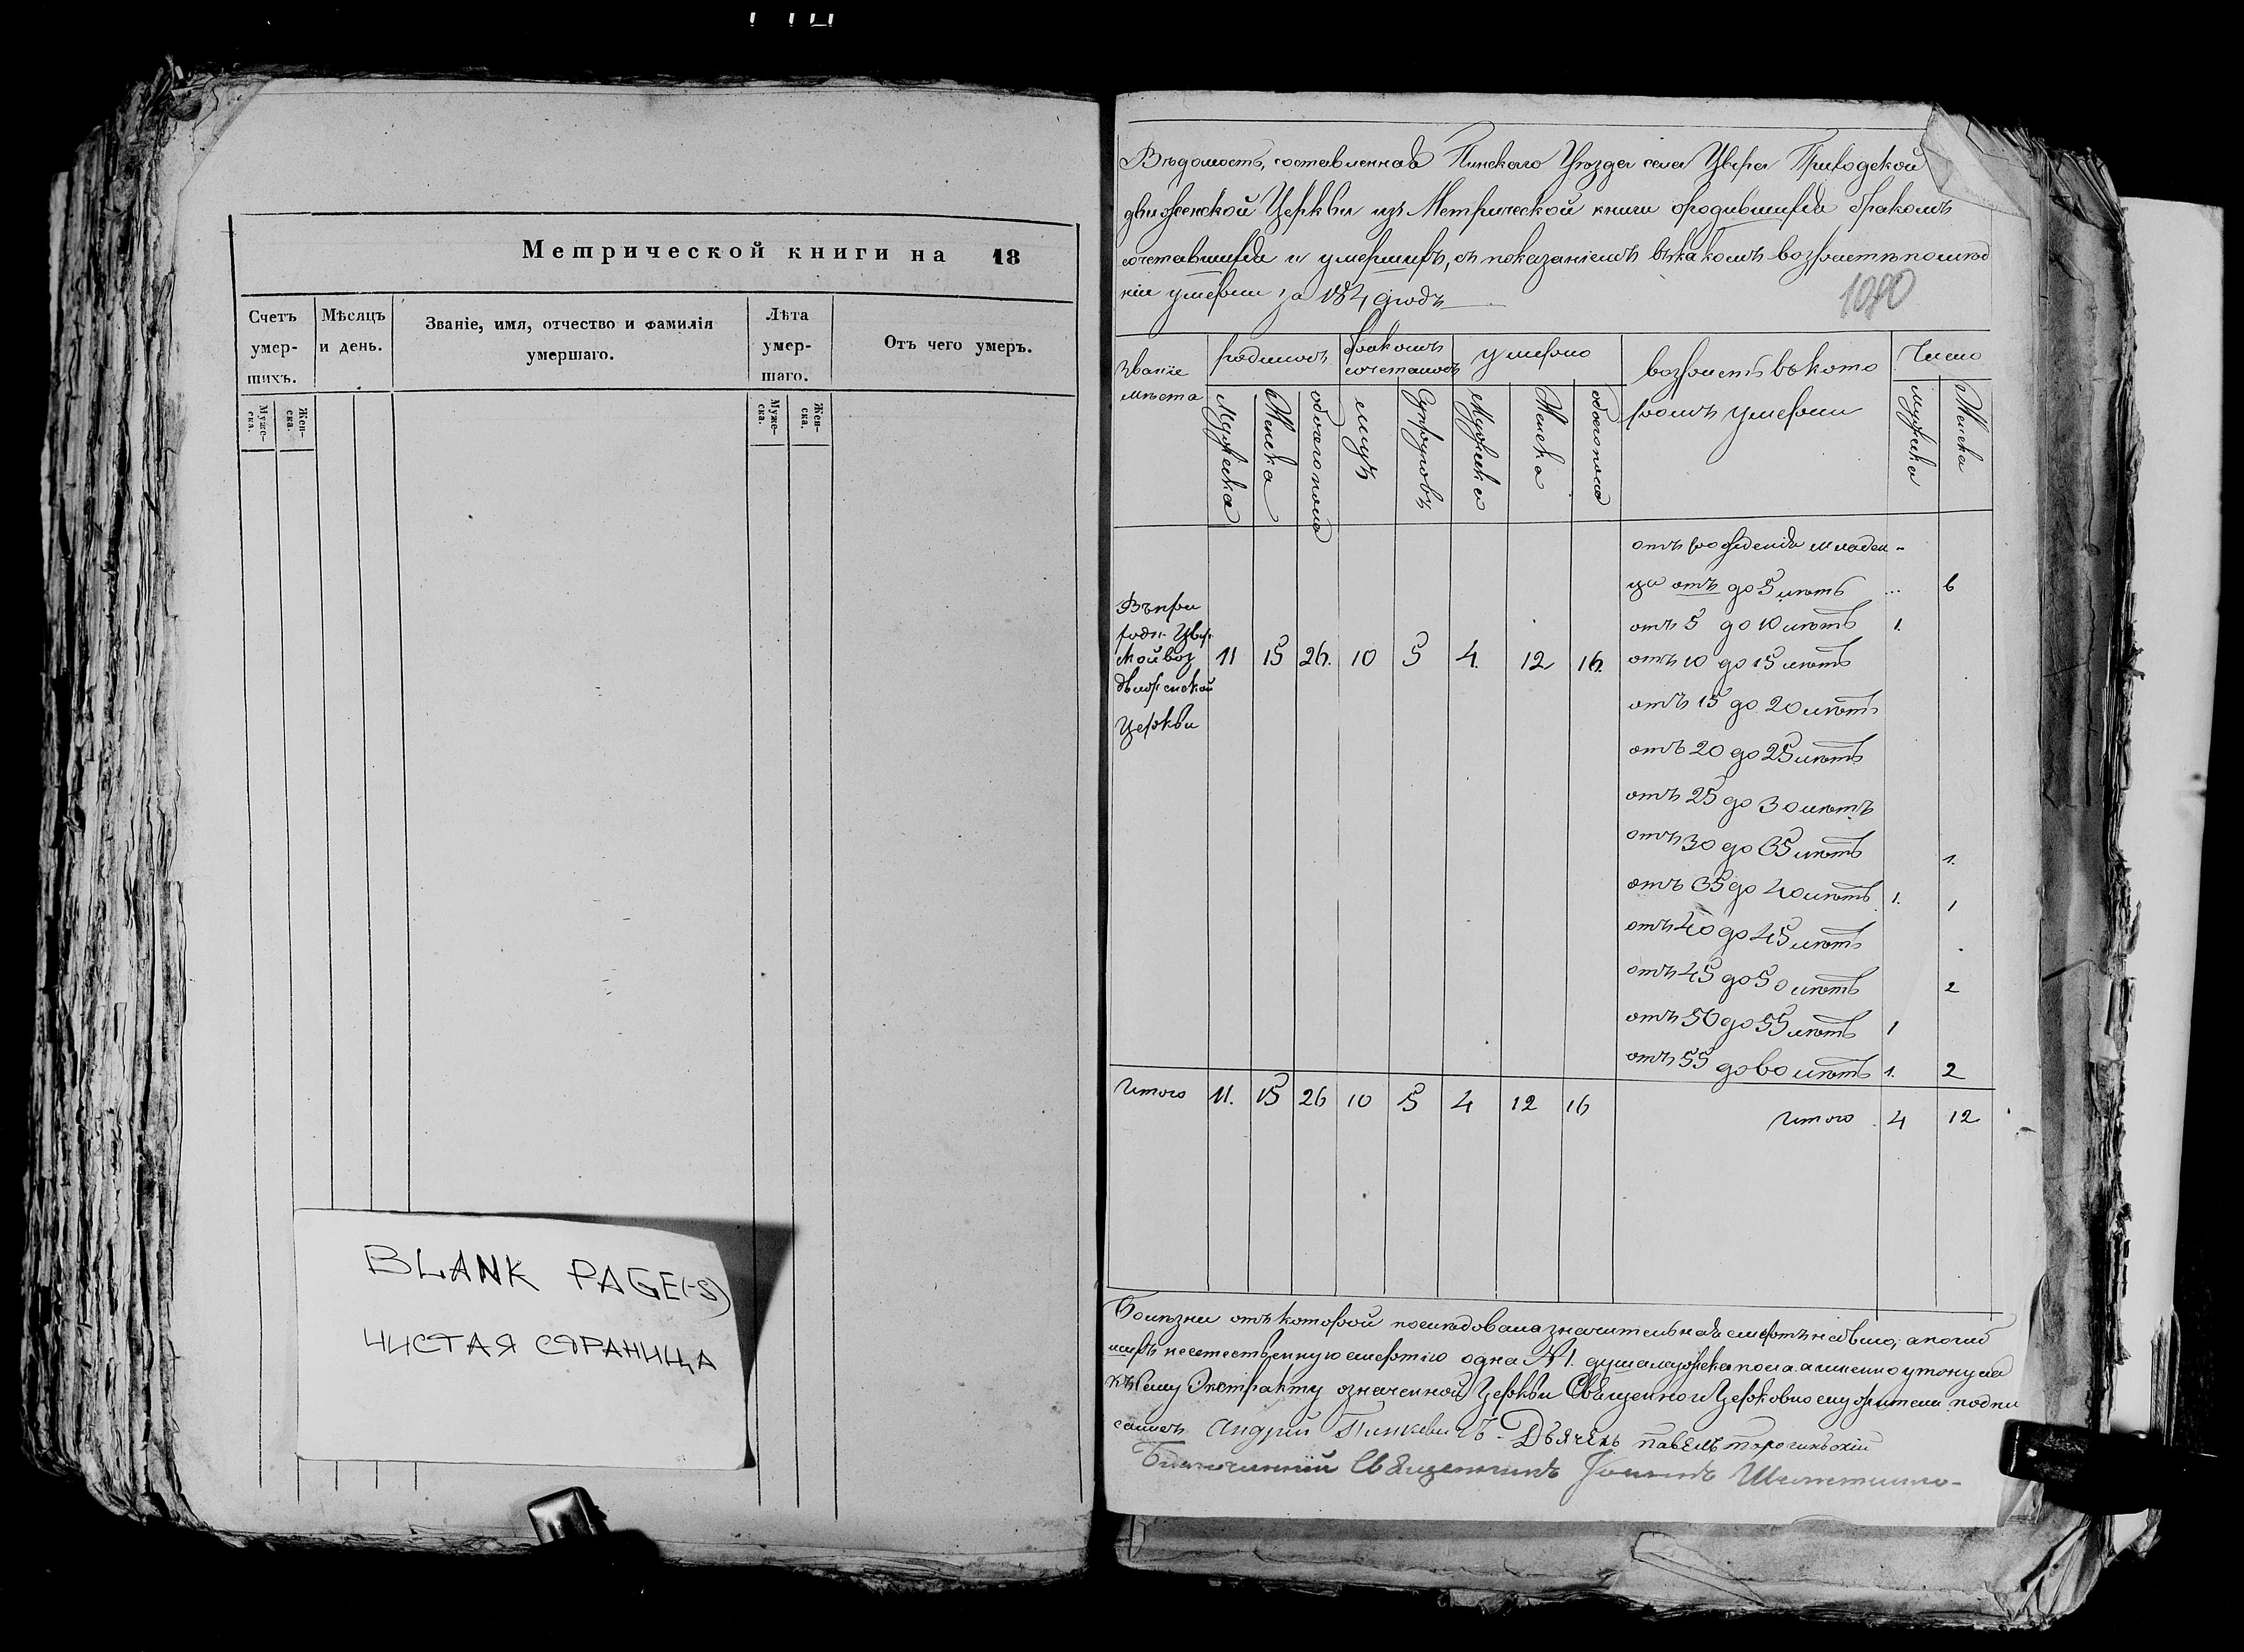 Метрической книги на 18
Счетъ умер-шихъ.
Мѣсяцъ и день.
Званіе, имя, отчество и фамилія умершаго.
Лѣта умер-шаго.
Отъ чего умеръ.
Муже-ска.
Жен-ска.
Муже-ска.
Жен-ска.
BLANK PAGE(-S)
ЧИСТАЯ СТРАНИЦА
Вѣдомость, составленная Пинскаго Уѣзда села Цвера Приходской
движенской Церкви изъ Метрической книги ородившихся бракомъ
сочетавшихся и умершихъ, съ показаніемъ вкакомъ возрастѣ
умерли за 184 годъ
1090
Званіе мѣста
родилось
бракомъ сочеталось
умерло
возрастъ въкото
ромъ умерли
Число
Мужеска
Женска
обоего пола
лицъ
Супруговъ
Мужеска
Женска
обоегопола
мужеска
Женска
отъ рожденія младен-
ца отъ до 5 лѣтъ ... 6
отъ 5 до 10 лѣтъ 1.
Въпри
ходѣ Цвер
ской воз
движенской
Церкви
11 15 26. 10 5 4. 12 16.
отъ 10 до 15 лѣтъ
отъ 15 до 20 лѣтъ
отъ 20 до 25 лѣтъ
отъ 25 до 30 лѣтъ
отъ 30 до 35 лѣтъ 1.
отъ 35 до 40 лѣтъ 1. 1
отъ 40 до 45 лѣтъ
отъ 45 до 50 лѣтъ 2
отъ 50 до 55 лѣтъ 1
отъ 55 до 60 лѣтъ 1. 2
Итого 11. 15 26 10 5 4 12 16
Итого 4 12
Болѣзни отъ которой послѣдовала значительная смерть небыло, а погиб
шихъ неестественную смертію одна № 1. душа мужеска пола а именно утонула
къ сему Экстракту означенной Церкви Священно и Церковно служители подпи
сались Андрей Пинкевичъ - Дьячекъ павелъ
Благочинный Священникъ